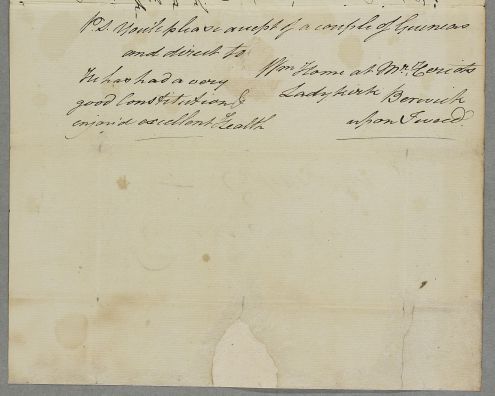 P.S. You'll please accept of a couple of Guineas
and direct to
Wm Home at Mr. Heriots
Ladykirk Berwick
upon Tweed.
He has had a very
good Constitution &
enjoy'd excellent Health